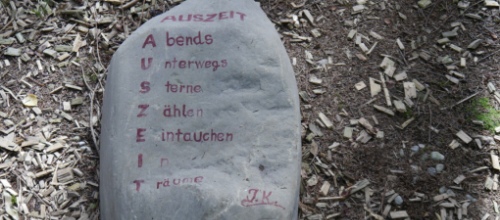 AUSZEIT
Abends
Unterwegs
Sterne
Zählen
Eintauchen
In
Träume
J.K.